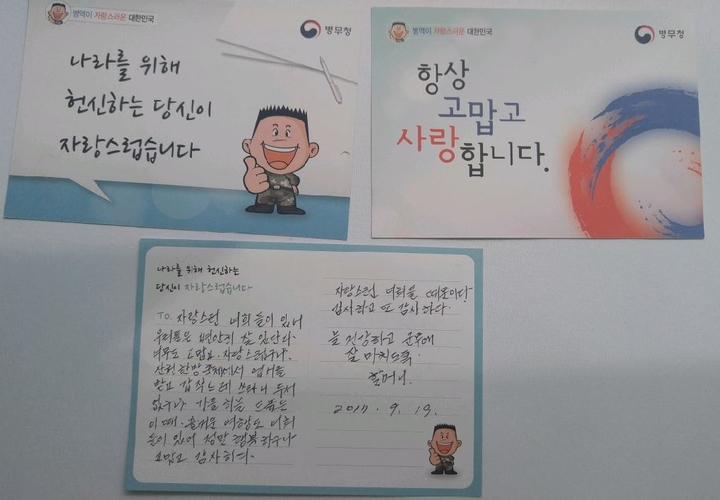 병역이 자랑스러운 대한민국
병무청
나라를 위해
헌신하는 당신이
자랑스럽습니다
병역이 자랑스러운 대한민국
병무청
항상
고맙고
사랑합니다.
나라를 위해 헌신하는
당신이 자랑스럽습니다
TO. 자랑스런 너희들이 있어
우리들은 편안히 살 있단다.
너무도 고맙고. 자랑스럽구나.
산청한방축제에서 엽서를
받고 갑작스레 쓰려니 두서
없구나 가을 하늘 드높은
이 때. 즐거운 여행도 너희
들이 있어 정말 행복하구나
고맙고 감사하다.
자랑스런 너희들 때문이다
감사하고 또 감사하다.
늘 건강하고 운무에
잘 마치도록.
할머니.
2017. 9. 19.